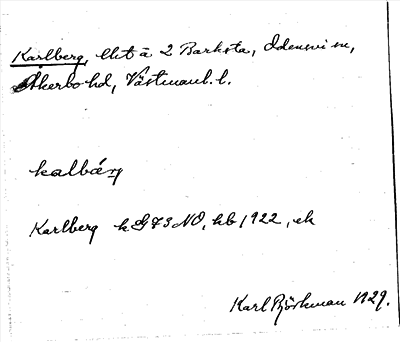 Karlberg, lht å 2 Barksta, Odensvi sn,
Åkerbo hd, Västmanl. l.
kalbárj
Karlberg k G 73 NO, hb 1922, ek
Karl Björkman 1929.